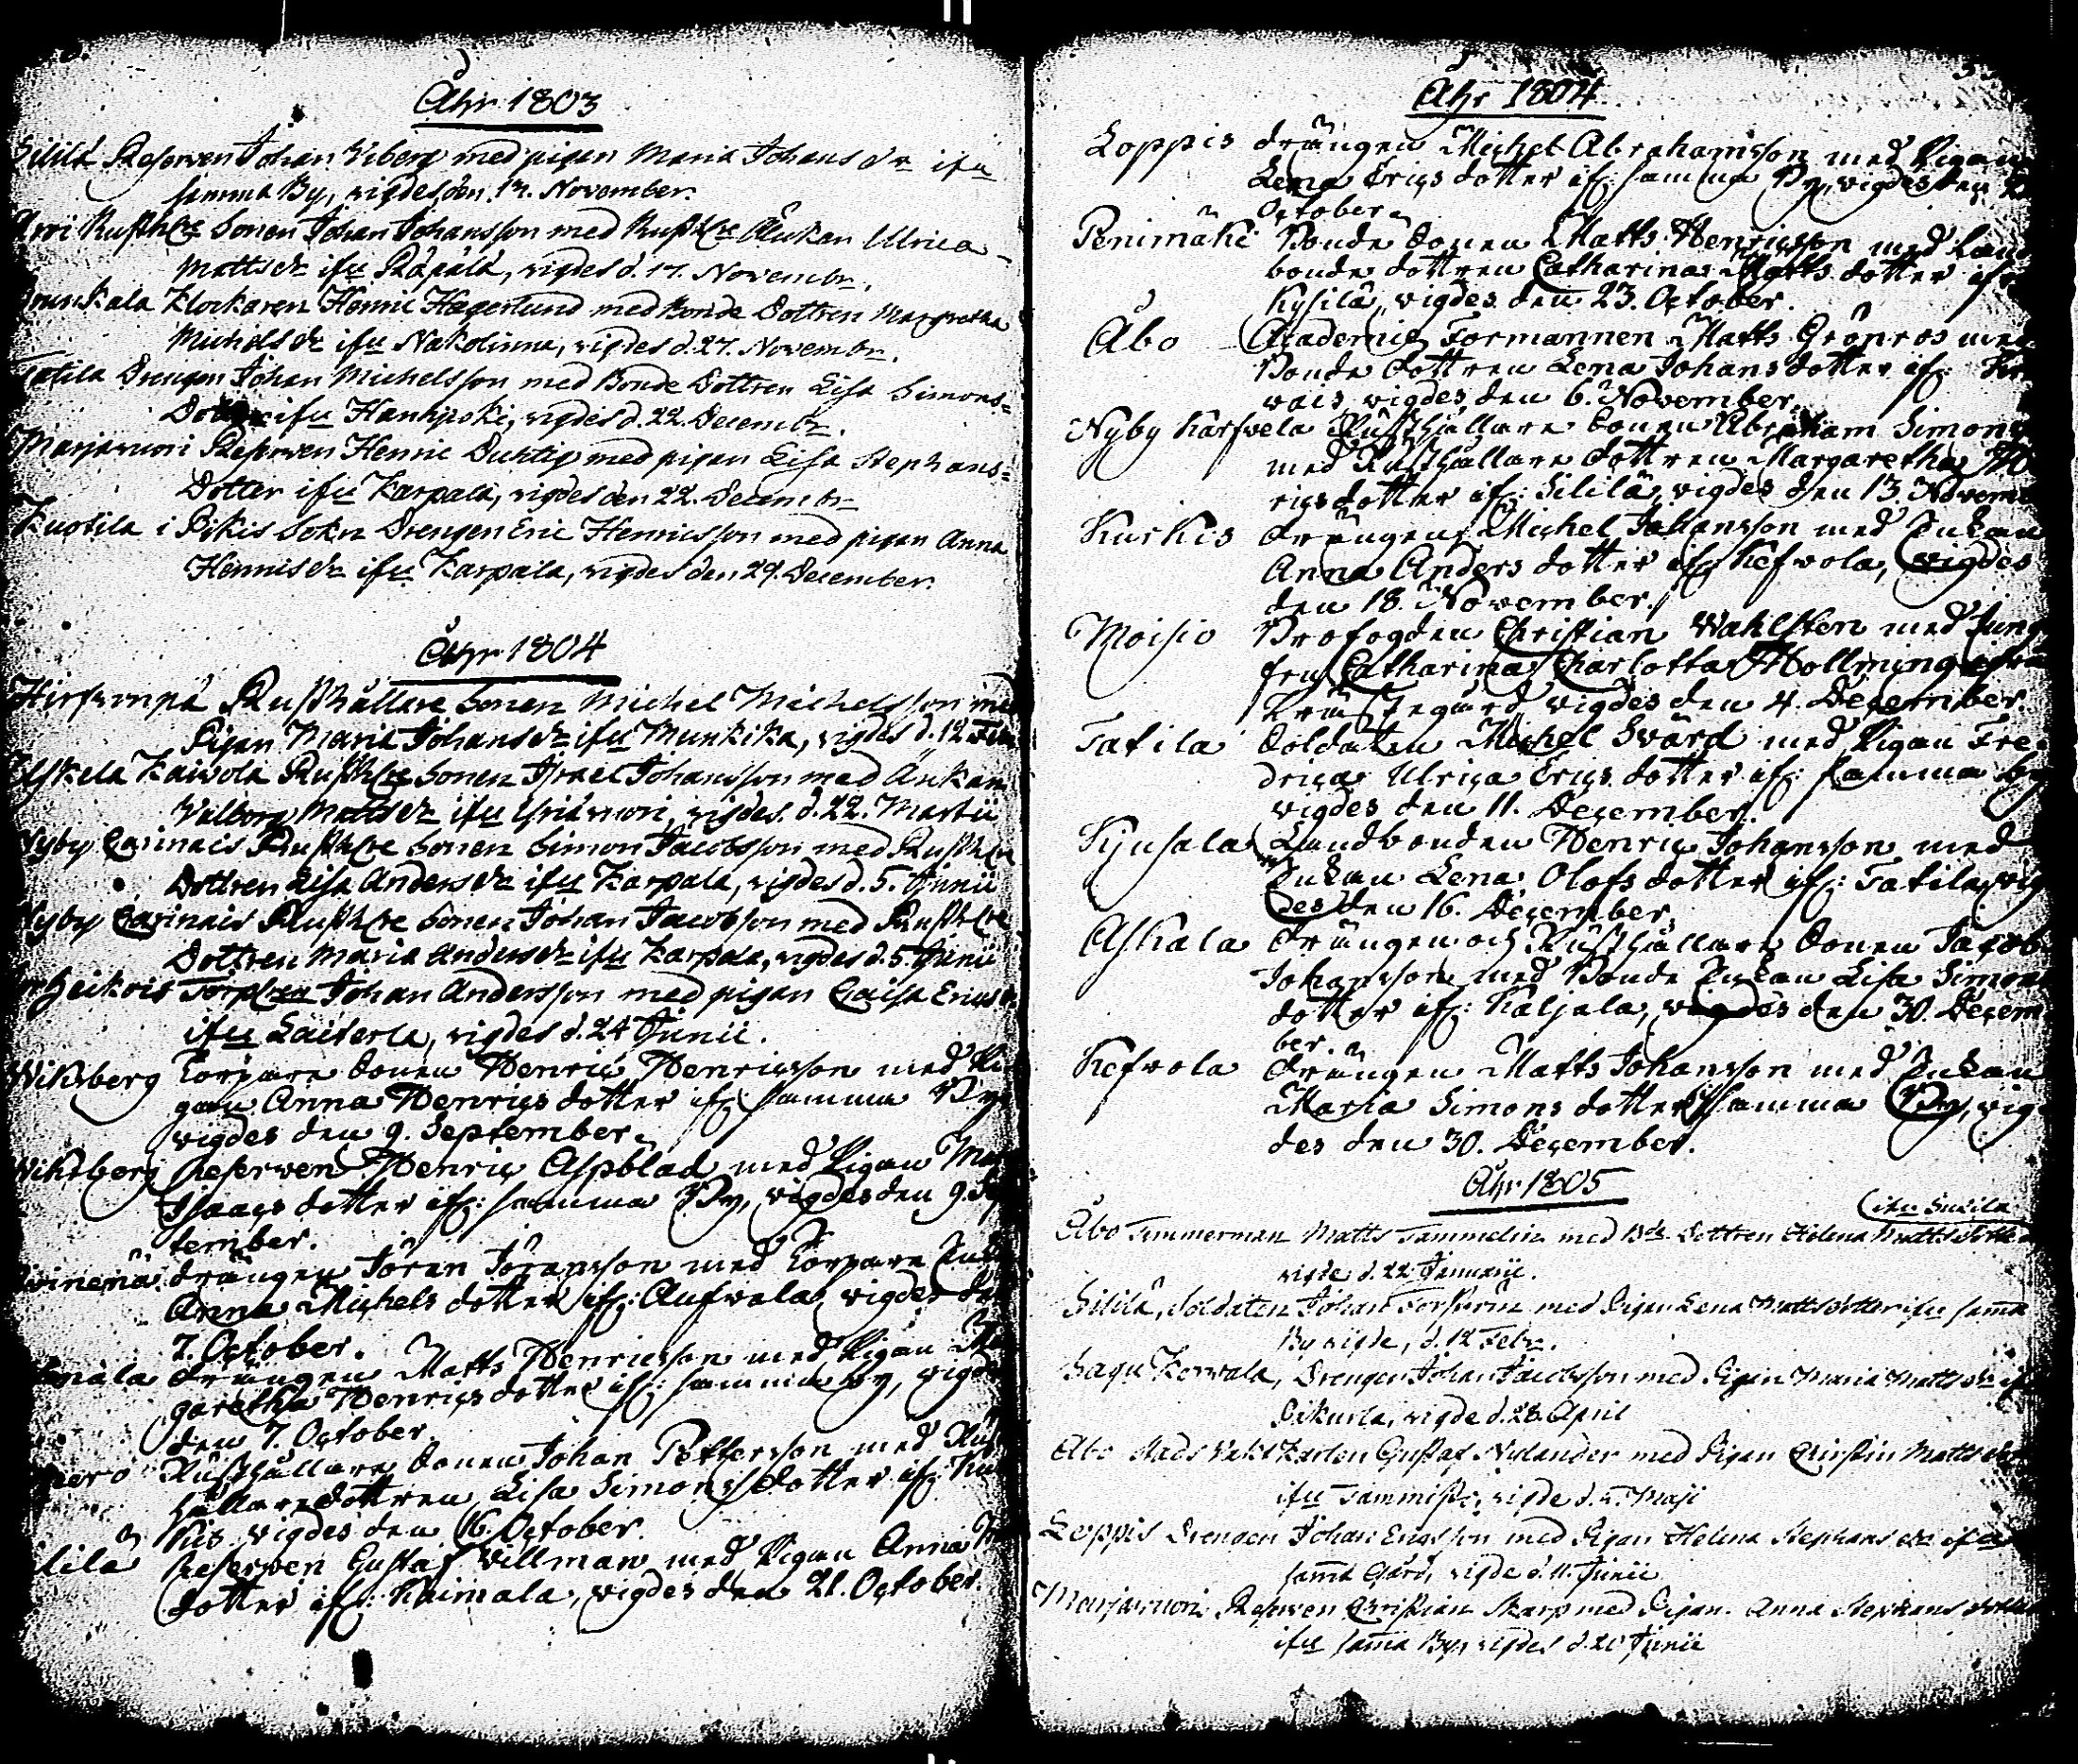 Åhr 1803
Sililä Reserven Johan Viberg med pigan Maria Johans dr ifrn
samma By, vigdes den 13. November.
Rusthlre Sonen Johan Johansson med Rusthlre Änkan Ulrica
Mattsdr ifrn Räpälä, vigdes d. 17. Novembr.
Klockaren Henric Hagerlund med Bonde Dottren Margretha
Michelsdr ifrn Nakolinna, vigdes d. 27. Novembr.
Tatila Drengen Johan Michelsson med Bonde Dottren Lisa Simons=
Dotter ifrn Hanhijoki, vigdes d. 22. Decembr.
Marjavuori Reserven Henric Duktig med pigan Lisa Stephans=
Dotter ifrn Karpala, vigdes den 22. Decembr
Kuotila i Pikis Sokn Drengen Eric Henricsson med pigan Anna
Henricsdr ifrn Karpala, vigdes den 29. December.
Åhr 1804
Rusthållare Sonen Michel Michelsson med
Pigan Maria Johansdr ifrn Munkika, vigdes d. 12 Febr
Kaivola Rusthlre Sonen Israel Johansson med Änkan
Valborg Mattsdr ifrn Yrivuori, vigdes d. 22. Martii
Nyby Carinais Rusthlre Sonen Simon Jacobsson med Rusthlre
Dottren Lisa Andersdr ifrn Karpala, vigdes d. 5. Junii
Nyby Carinais Rusthlre Sonen Johan Jacobsson med Rusthlre
Dottren Maria Andersdr ifrn Karpala, vigdes d. 5. Junii
Heikois Torparen Johan Andersson med pigan Caisa Erics dr
ifrn Laiterla, vigdes d. 24 Junii.
Wiksberg Torpare Sonen Henric Henricsson med Pi
gan Anna Henrics dotter ifr: samma By,
vigdes den 9. September.
Wiksberg Reserven Henric Aspblad med Pigan
Isaacs dotter ifr: samma By, vigdes den 9. Sep
tember.
drängen Jöran Jöransson med Torpare
Anna Michels dotter ifr: Aufvala, vigdes den
7. October.
drängen Matts Henricsson med Pigan Mar
garetha Henrics dotter ifr: samma by, vigdes
den 7. October.
Rusthållare Sonen Johan Pettersson med Rust
hållare dottren Lisa Simons dotter ifr: Kur
kis vigdes den 16. October.
Reserven Gustaf Villman med Pigan Anna
dotter ifr: Kaimala, vigdes den 21. October.
Åhr 1804
Loppis drängen Michel Abrahamsson med Pigan
Lena Erics dotter ifr: samma By, vigdes den
October.
Penimäki Bonde Sonen Matts Henricsson med Land
bonde dottren Catharina Matts dotter ifr:
Kysilä, vigdes den 23. October.
Åbo Academie Formannen Matts Grönros med
Bonde dottren Lena Johans dotter ifr:
vais vigdes den 6. November.
Nyby Kärfvela Rusthållare Sonen Abraham Simons
med Rusthållare dottren Margaretha
rics dotter ifr: Sililä, vigdes den 13. Novem
Kurkis drängen Michel Johansson med Enkan
Anna Anders dotter ifr: Kefvola, vigdes
den 18. November.
Moisio Profogden Christian Wahlsten med Jung
fru Catharina Charlotta Hollming ifrå
Prästegård vigdes den 4. December.
Tatila Soldaten Michel Svärd med Pigan Fre
drica Ulrica Erics dotter ifr: samma by
vigdes den 11. December.
Landbonden Henric Johansson med
Enkan Lena Olofs dotter ifr: Tatila, vig
des den 16. December.
Askala drängen och Rusthållare Sonen Jacob
Johansson med Bonde Enkan Lisa Simons
dotter ifr: Kaljala, vigdes den 30. Decem
ber.
Kefvola drängen Matts Johansson med Enkan
Maria Simons dotter samma By, vig
des den 30. December.
Åhr 1805
Åbo Timmerman Matts Tammelin med Bde Dottren Helena Matts dotter
vigde d. 22 Januarii.
Sililä, Soldaten Johan med Pigan Lena Matts dotter ifrn samma
By vigde, d. 12 Febr.
Sagu Drengen Johan Jacobsson med Pigan Maria Matts dr ifr
vigde d. 28. April
Åbo Stads Vakt Karlen Gustaf Nylander med Pigan Christin Matts dr
ifrn Tammisto, vigde d. Maji
Loppis Drengen Johan Ericsson med Pigan Helena Stephans dr ifrn
samma Gård, vigde d. 11. Junii
Marjavuori Reserven Christian Skarp med Pigan Anna Stephans dotter
ifrn samma By, vigdes d. 20 Junii